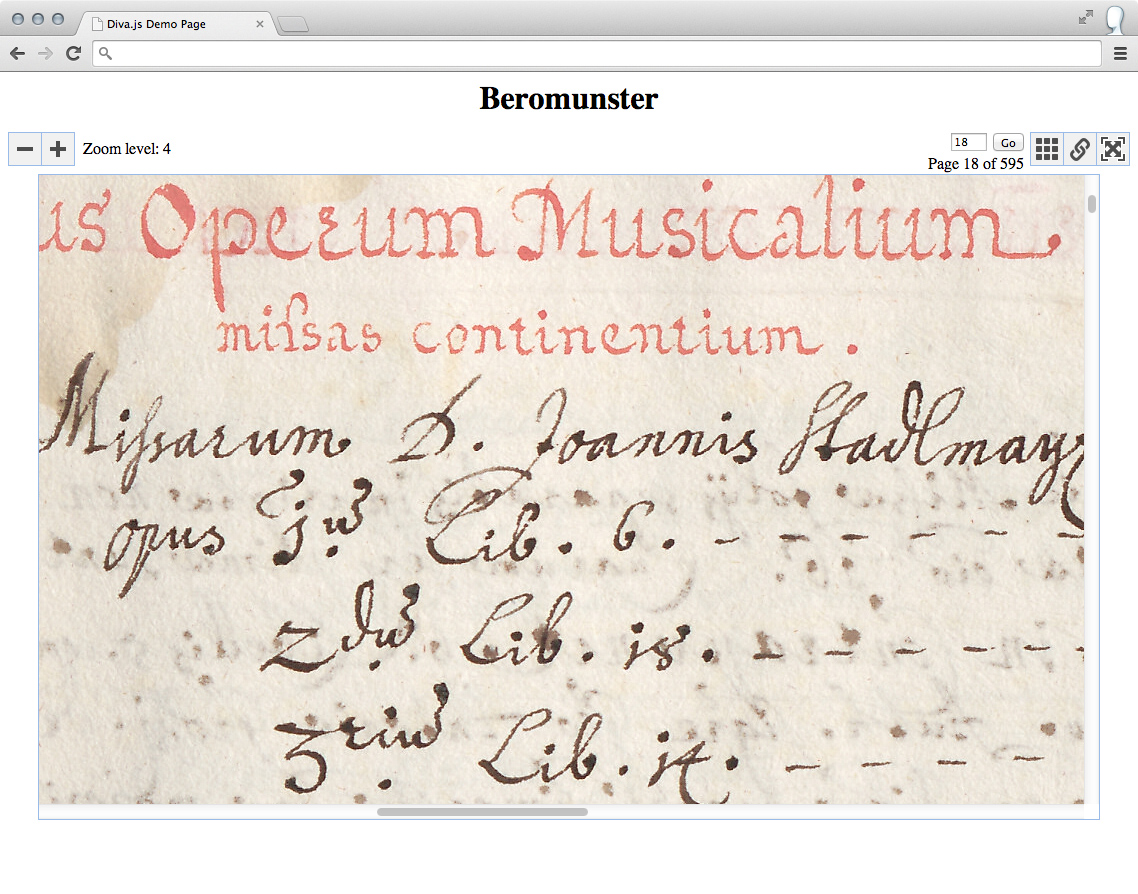 Diva.js Demo Page
Beromunster
Zoom level: 4
18 Go
Page 18 of 595
us Operum Musicalium.
miſsas continentium.
Miſsarum D. Joannis Stadlmayr
opus 1us Lib. 6. - - - - - -
2dus Lib. 18. - - - - -
3tius Lib. 14. - - - -